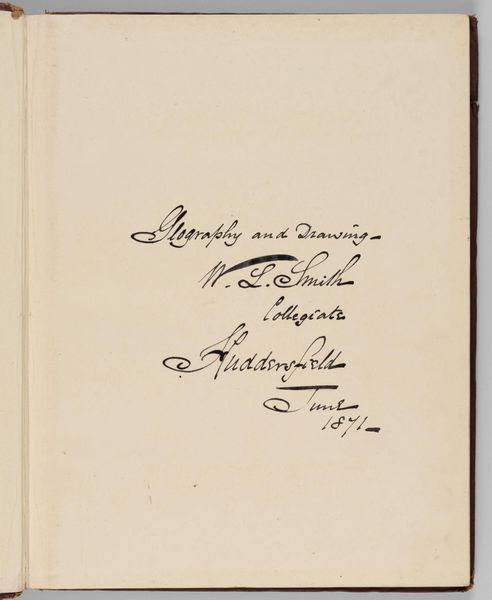 Geography and Drawing-
W. L. Smith
Collegiate
Huddersfield
June
1871-